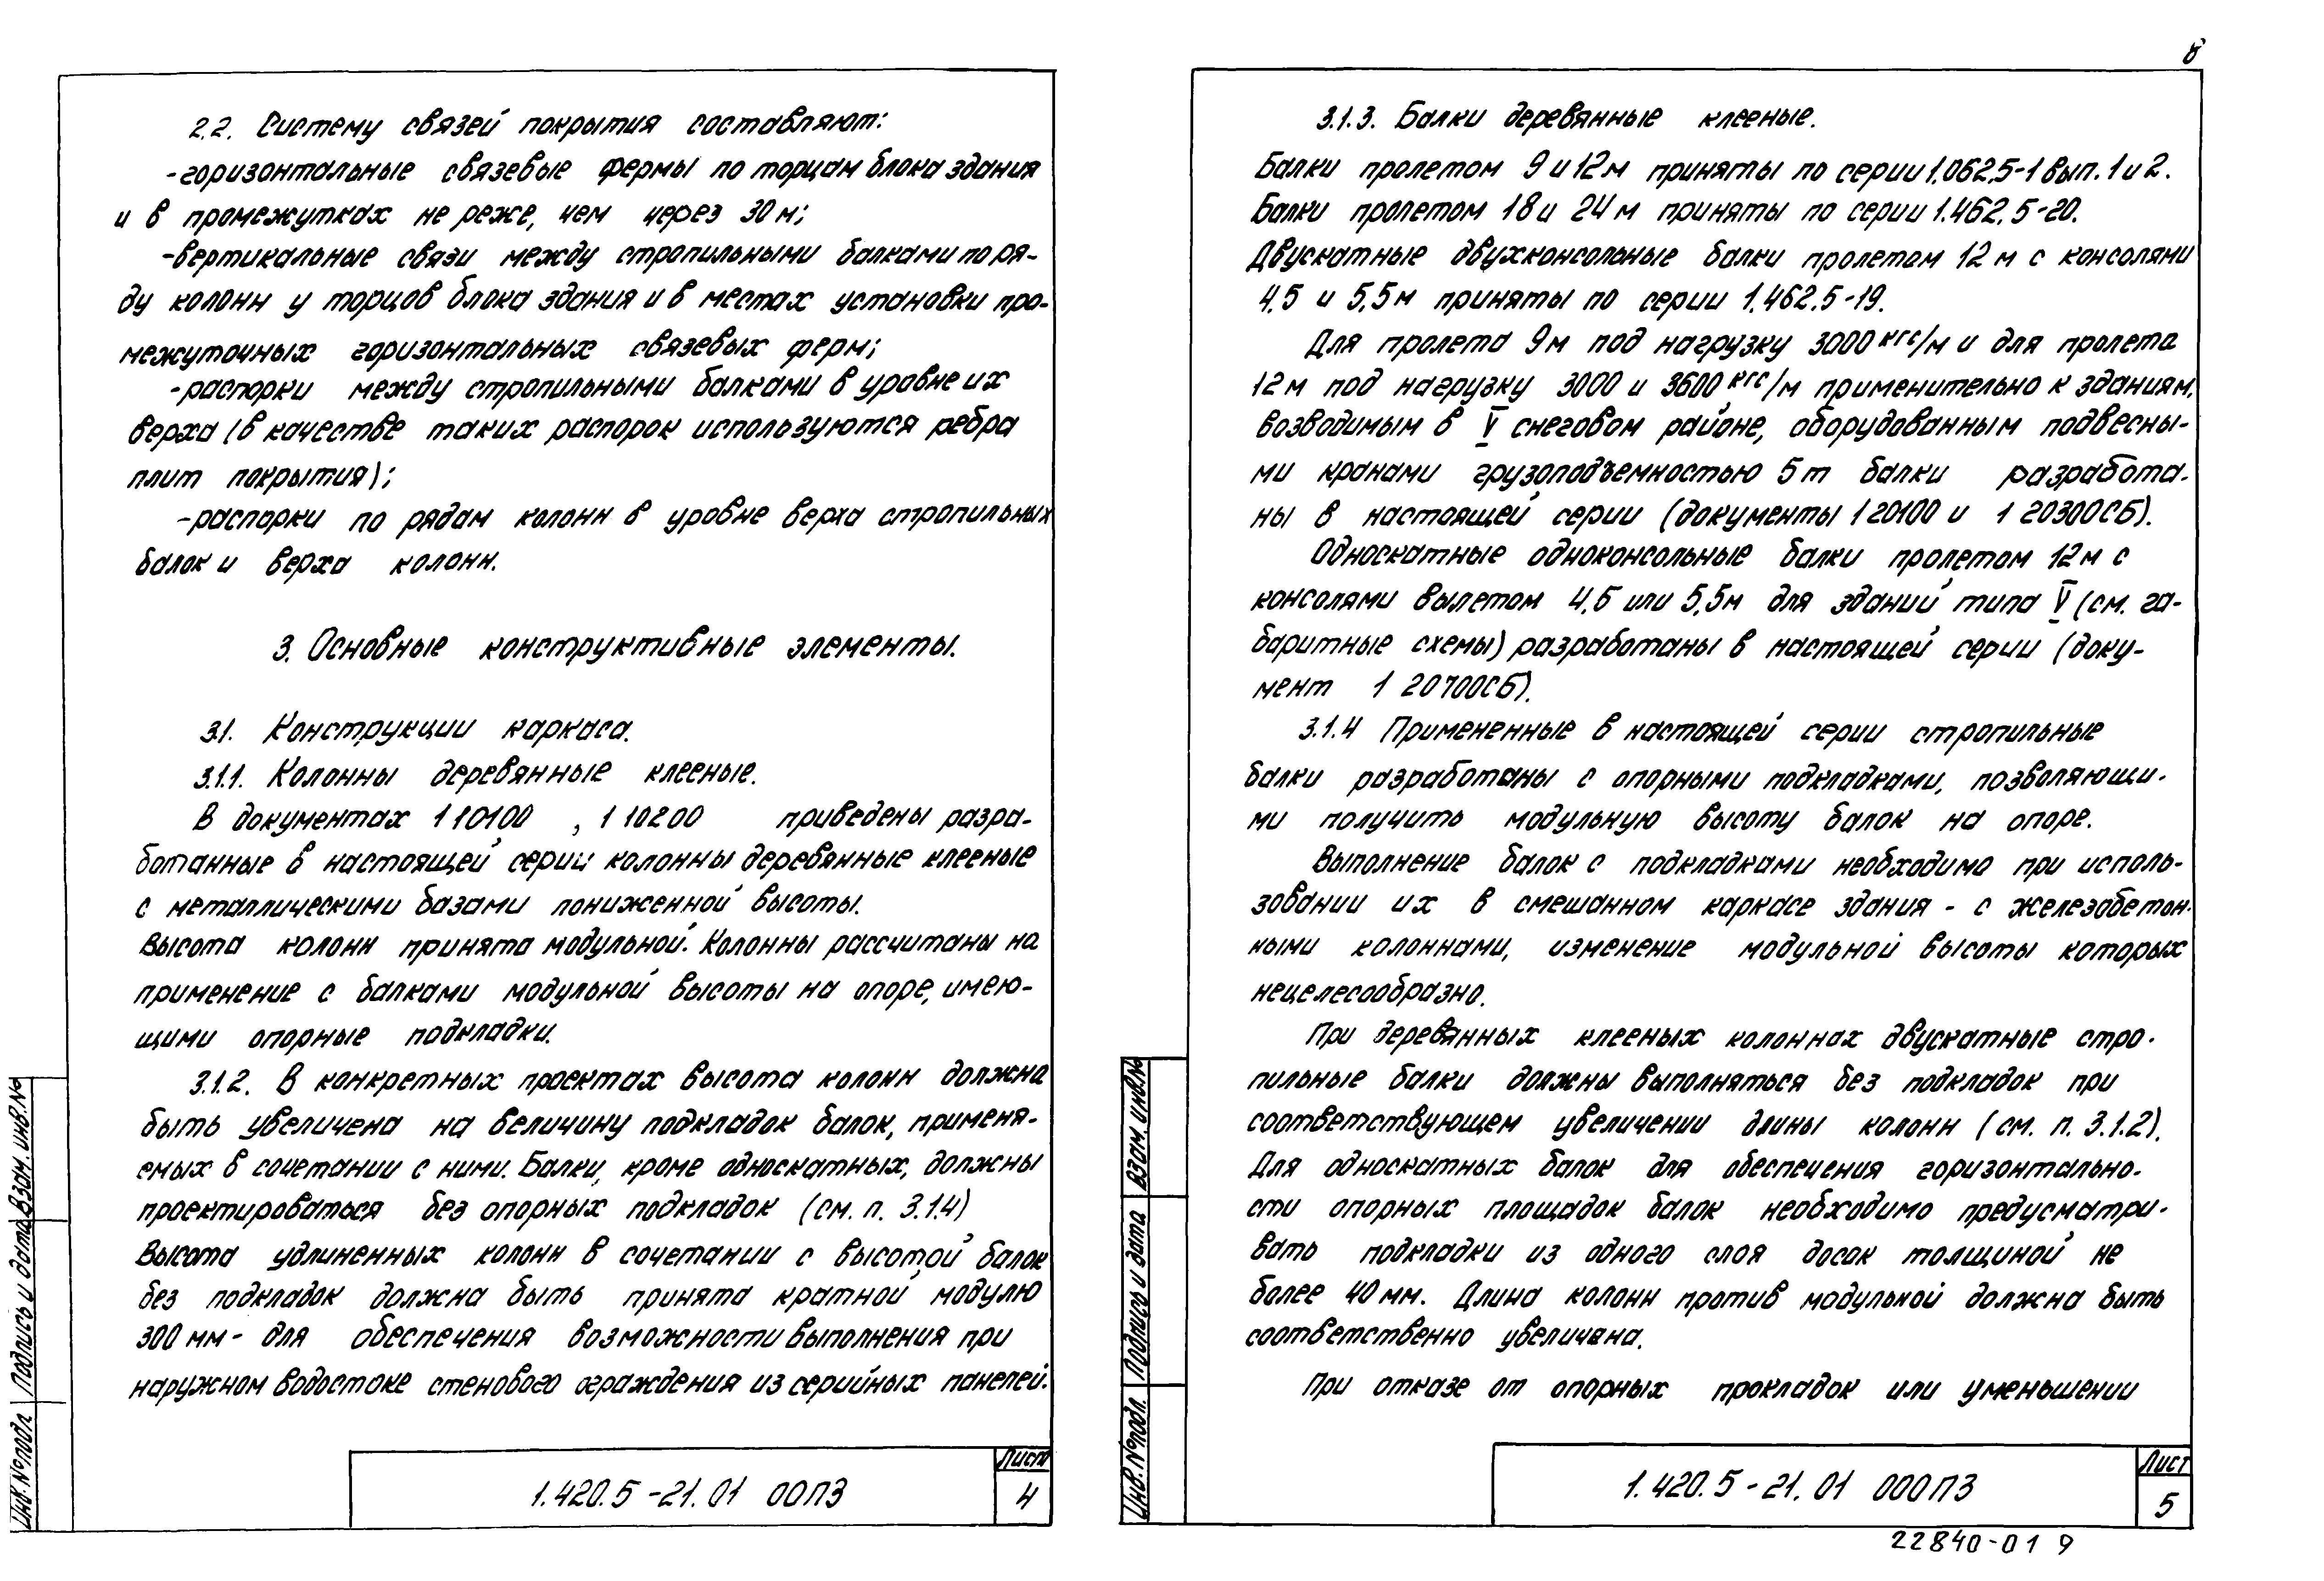 2.2. Систему связей покрытия составляют:
-горизонтальные связевые фермы по торцам блока здания
и в промежутках не реже, чем через 30 м;
-вертикальные связи между стропильными балками по ря-
ду колонн у торцов блока здания и в местах установки про-
межуточных горизонтальных связевых ферм;
-распорки между стропильными балками в уровне их
верха (в качестве таких распорок используются ребра
плит покрытия);
-распорки по рядам колонн в уровне верха стропильных
балок и верха колонн.
3. Основные конструктивные элементы.
3.1. Конструкции каркаса.
3.1.1. Колонны деревянные клееные.
В документах 1 10100 , 1 10200 приведены разра-
ботанные в настоящей серии колонны деревянные клееные
с металлическими базами пониженной высоты.
Высота колонн принята модульной. Колонны рассчитаны на
применение с балками модульной высоты на опоре, имею-
щими опорные подкладки.
3.1.2. В конкретных проектах высота колонн должна
быть увеличена на величину подкладок балок, применя-
емых в сочетании с ними. Балки, кроме односкатных, должны
проектироваться без опорных подкладок (см. п. 3.1.4)
Высота удлиненных колонн в сочетании с высотой балок
без подкладок должна быть принята кратной модулю
300 мм - для обеспечения возможности выполнения при
наружном водостоке стенового ограждения из серийных панелей.
Инв. № подл. Подпись и дата Взам. инв. №
1.420.5-21.01 00ПЗ
Лист
4
8
3.1.3. Балки деревянные клееные.
Балки пролетом 9 и 12 м приняты по серии 1.062.5-1 вып. 1 и 2.
Балки пролетом 18 и 24 м приняты по серии 1.462.5-20.
Двускатные двухконсольные балки пролетом 12 м с консолями
4,5 и 5,5 м приняты по серии 1.462.5-19.
Для пролета 9 м под нагрузку 3000 кгс/м и для пролета
12 м под нагрузку 3000 и 3600 кгс/м применительно к зданиям,
возводимым в V снеговом районе, оборудованным подвесны-
ми кранами грузоподъемностью 5 т балки разработа-
ны в настоящей серии (документы 1 20100 и 1 20300СБ).
Односкатные одноконсольные балки пролетом 12 м с
консолями вылетом 4,5 или 5,5м для зданий типа V (см. га-
баритные схемы) разработаны в настоящей серии (доку-
мент 1 20700СБ).
3.1.4 Примененные в настоящей серии стропильные
балки разработаны с опорными подкладками, позволяющи-
ми получить модульную высоту балок на опоре.
Выполнение балок с подкладками необходимо при исполь-
зовании их в смешанном каркасе здания - с железобетон-
ными колоннами, изменение модульной высоты которых
нецелесообразно.
При деревянных клееных колоннах двускатные стро-
пильные балки должны выполняться без подкладок при
соответствующем увеличении длины колонн (см. п. 3.1.2).
Для односкатных балок для обеспечения горизонтально-
сти опорных площадок балок необходимо предусматри-
вать подкладки из одного слоя досок толщиной не
более 40 мм. Длина колонн против модульной должна быть
соответственно увеличена.
При отказе от опорных прокладок или уменьшении
Инв. № подл. Подпись и дата Взам. инв. №
1.420.5-21.01 000ПЗ
Лист
5
22840-01 9